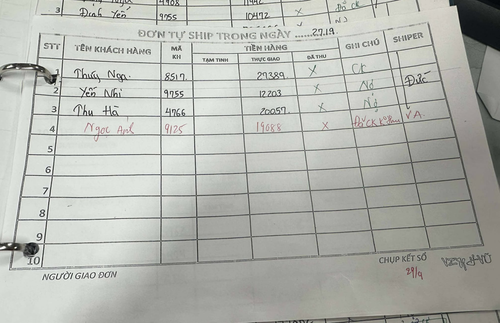 3 Đinh Yến 9755 10472 X
ĐƠN TỰ SHIP TRONG NGÀY ......27.19.
STT TÊN KHÁCH HÀNG MÃ KH TIỀN HÀNG GHI CHÚ SHIPER
TẠM TÍNH THỰC GIAO ĐÃ THU
1 Thuý Nga 8517 27389 X CK
2 Yến Nhi 9755 12203 X Nợ Đức
3 Thu Hà 4766 20057 X Nợ
4 Ngọc Ánh 9125 19088 X V.A.
5
6
7
8
9
10
NGƯỜI GIAO ĐƠN CHỤP KẾT SỔ
29/9